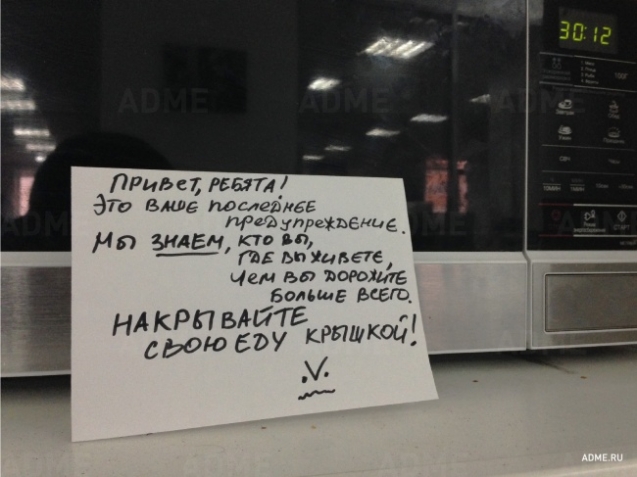 30:12
ПРИВЕТ, РЕБЯТА!
ЭТО ВАШЕ ПОСЛЕДНЕЕ
ПРЕДУПРЕЖДЕНИЕ.
МЫ ЗНАЕМ, КТО ВЫ,
ГДЕ ВЫ ЖИВЕТЕ,
ЧЕМ ВЫ ДОРОЖИТЕ
БОЛЬШЕ ВСЕГО.
НАКРЫВАЙТЕ
СВОЮ ЕДУ КРЫШКОЙ!
.V.
ADME
ADME
ADME.RU